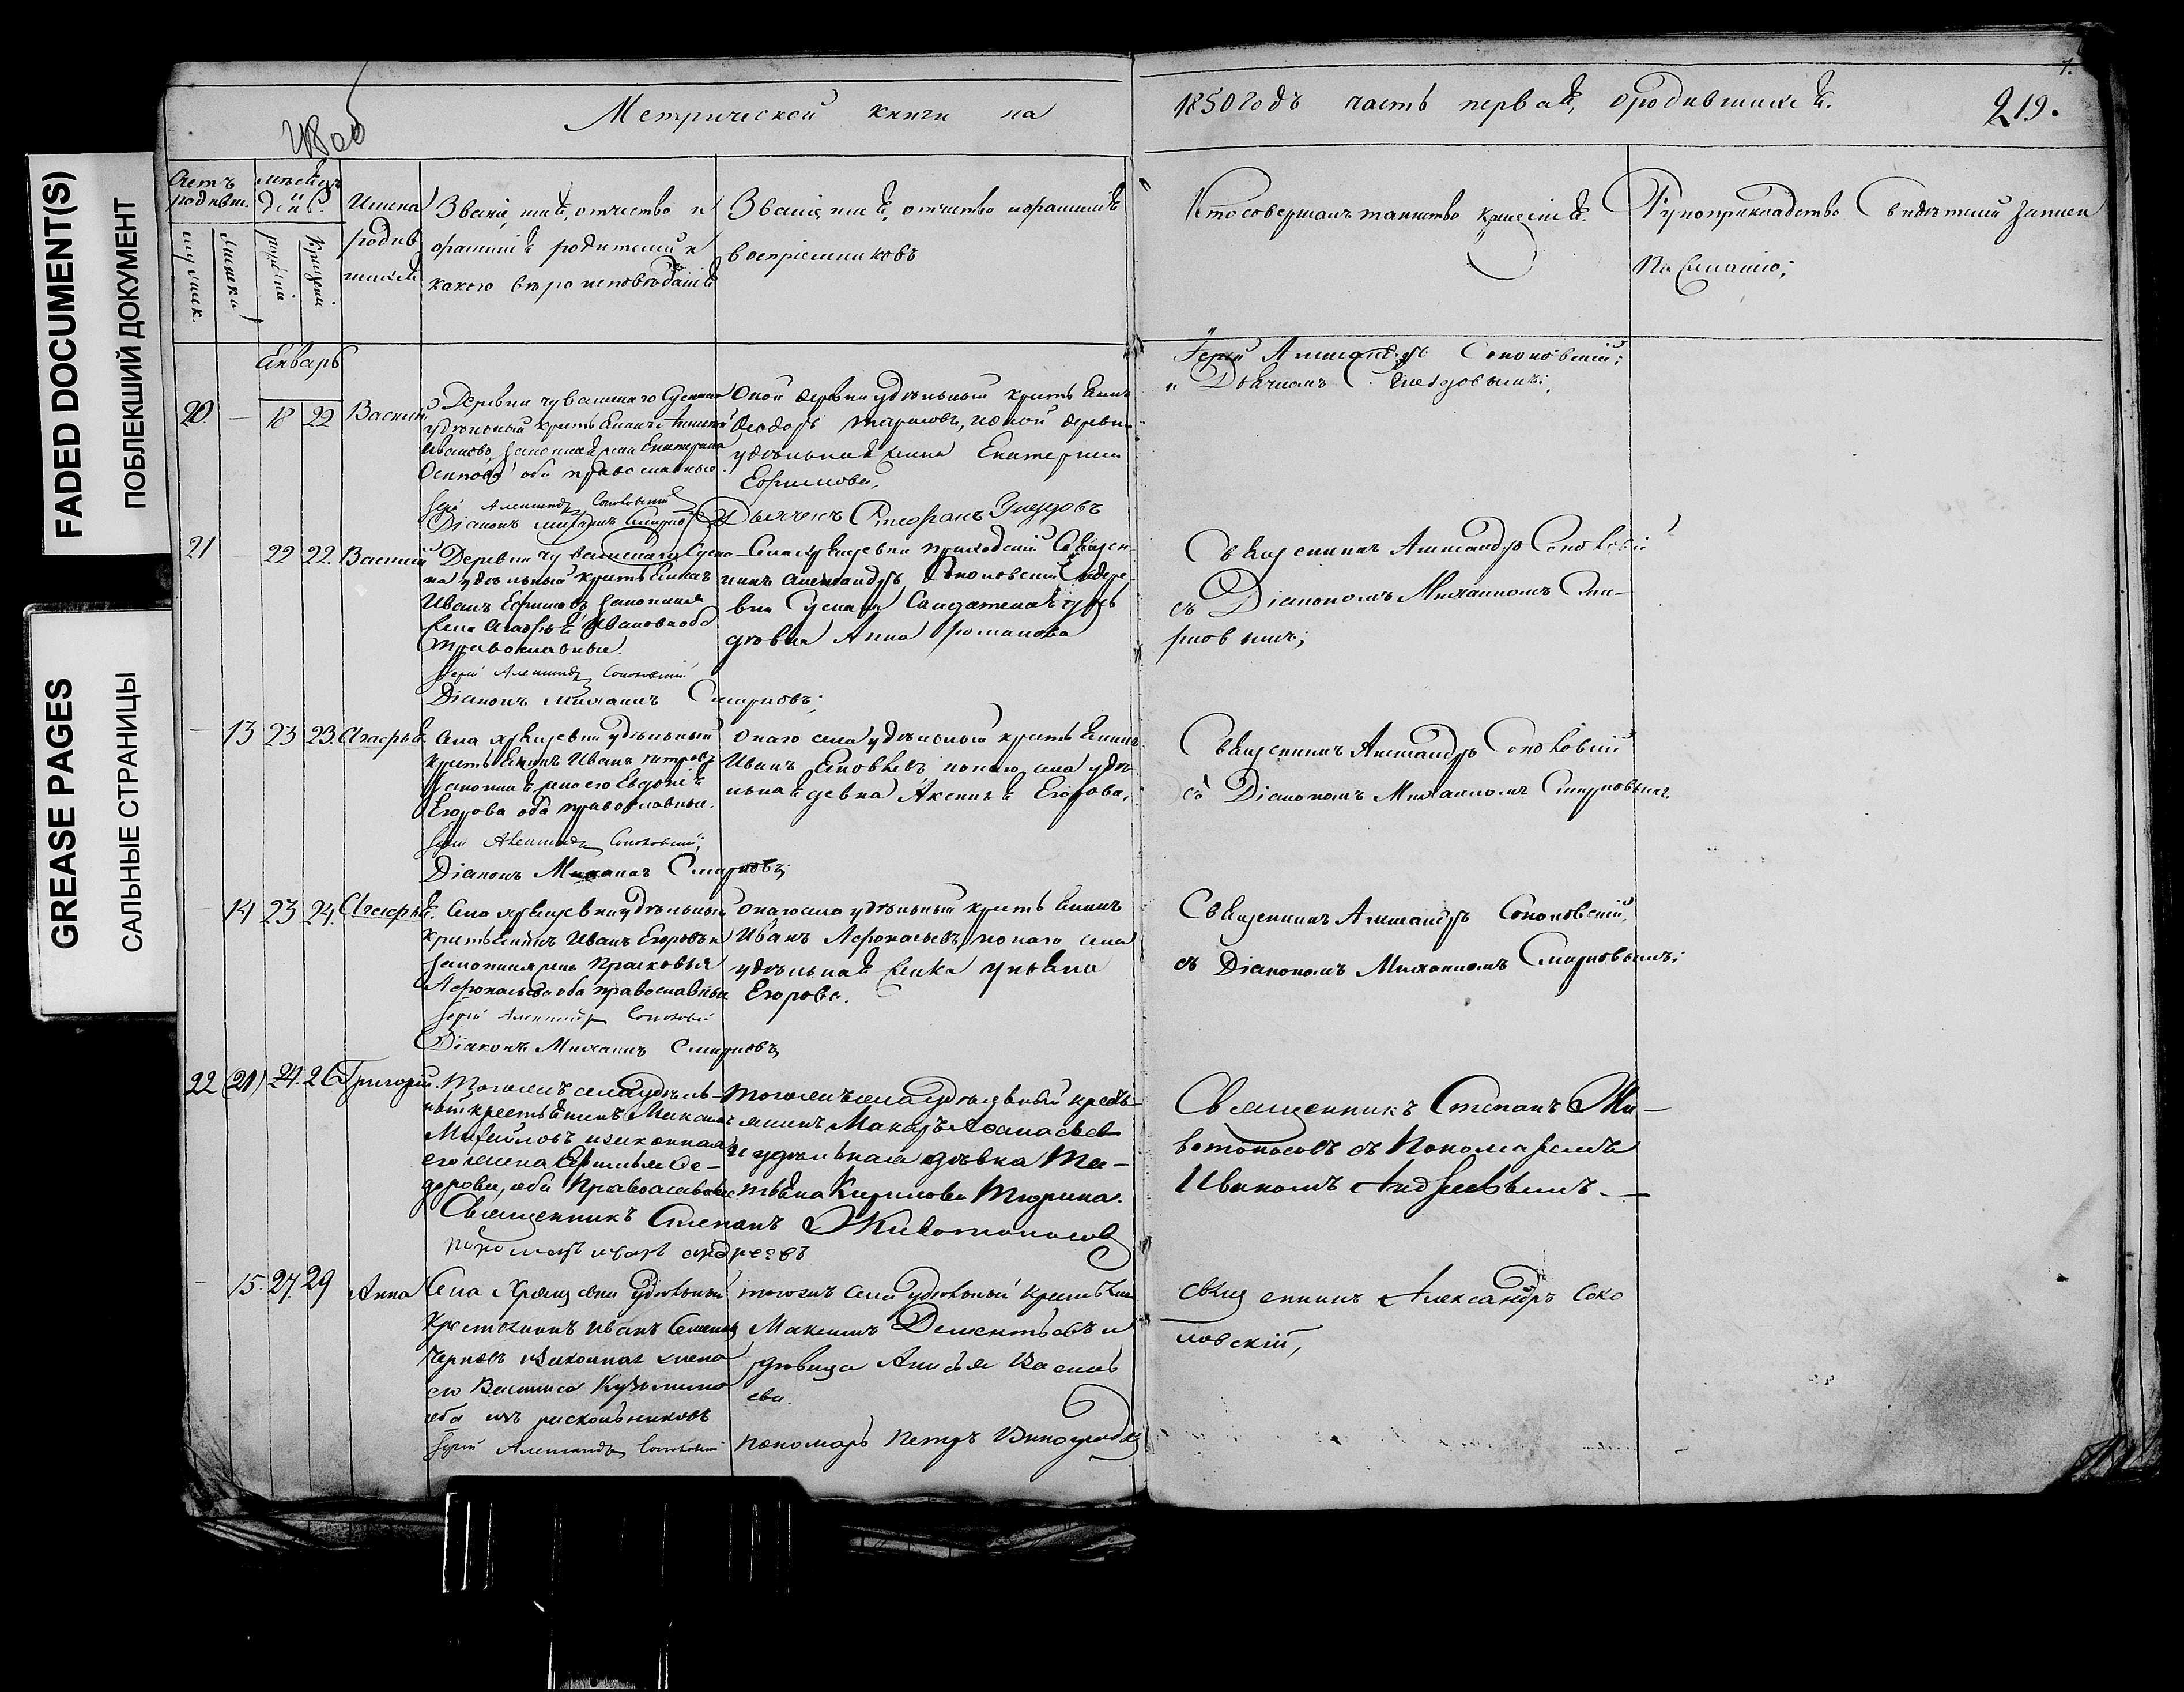 FADED DOCUMENT(S)
ПОБЛЕКШИЙ ДОКУМЕНТ
GREASE PAGES
САЛЬНЫЕ СТРАНИЦЫ
Метрической книги на
1850 годъ часть первая, о родившихся.
219.
Счетъ родивш.
мѣсяцъ и день.
Имена родившихся
Званіе, имя, отчество и
фамилія родителей и
какого вѣроисповѣданія
Званіе, имя, отчество и фамилія
воспріемниковъ
Кто совершалъ таинство крещенія.
Рукоприкладство свидѣтелей записи
по желанію;
Январь
20 — 18 22 Василій
Деревни чувашскаго
удѣльный крестьянинъ
Ивановъ, законная жена Екатерина
Осипова оба православные.
Іерей Александръ Соколовскій
Діаконъ Михаилъ Смирновъ
Оной деревни удѣльный крестьянинъ
Ѳеодоръ и оной деревни
удѣльная жена Екатерина
Ефимова,
Дьячекъ Стефанъ Гнездовъ
Іерей Александръ Соколовскій;
Дьячкомъ Гнездовымъ;
21 — 22 22. Василій
Деревни чувашскаго
удѣльный крестьянинъ
Иванъ Ефимовъ законная
жена Агафья Иванова оба
православные.
Іерей Александръ Соколовскій
Діаконъ Михаилъ Смирновъ;
Села Хрящевки приходскій Священ-
никъ Александръ Соколовскій и дере-
вни
дѣвка Анна Романова
Священникъ Александръ Соколовскій
съ Діакономъ Михаиломъ Сми-
рновымъ;
— 13 23 23.
Села Хрящевки удѣльный
крестьянинъ Иванъ Петровъ
законная жена его Евдокія
Егорова оба православные.
Іерей Александръ Соколовскій;
Діаконъ Михаилъ Смирновъ;
Онаго села удѣльный крестьянинъ
Иванъ Яковлевъ и онаго села удѣ-
льная девка Аксинья Егорова,
Священникъ Александръ Соколовскій
съ Діакономъ Михаиломъ Смирновымъ.
— 14 23 24.
Села Хрящевки удѣльный
крестьянинъ Иванъ Егоровъ и
законная жена Прасковья
Афонасьева оба православные
Іерей Александръ Соколовскій
Діаконъ Михаилъ Смирновъ
Онаго села удѣльный крестьянинъ
Иванъ Афонасьевъ, и онаго села
удѣльная женка Ульяна
Егорова.
Священникъ Александръ Соколовскій,
съ Діакономъ Михаиломъ Смирновымъ;
22 (21) 24. 26. Григорій.
Тогожъ села удѣль-
ный крестьянинъ
Михайловъ и законная
его жена Ѳе-
дорова, оба православные
Священникъ Степанъ Животоносовъ
пономарь иванъ андреевъ
Тогожъ села удѣльный кресть-
янинъ Макаръ Аѳанасьевъ
и удѣльная дѣвка Та-
тьяна Кирилова Тюрина.
Священникъ Степанъ Жи-
вотоносовъ съ Пономаремъ
Иваномъ Андреевымъ. —
— 15. 27. 29 Анна
Села Хрящевки Удѣльный
крестьянинъ Иванъ Семеновъ
Черновъ и законная жена
его Василиса Кузьмина
оба изъ раскольниковъ
Іерей Александръ Соколовскій
тогожъ села удѣльный крестьянинъ
Максимъ Дементьевъ и
дѣвица Анисья Василь
ева.
пономарь Петръ
священникъ Александръ Соко
ловскій,